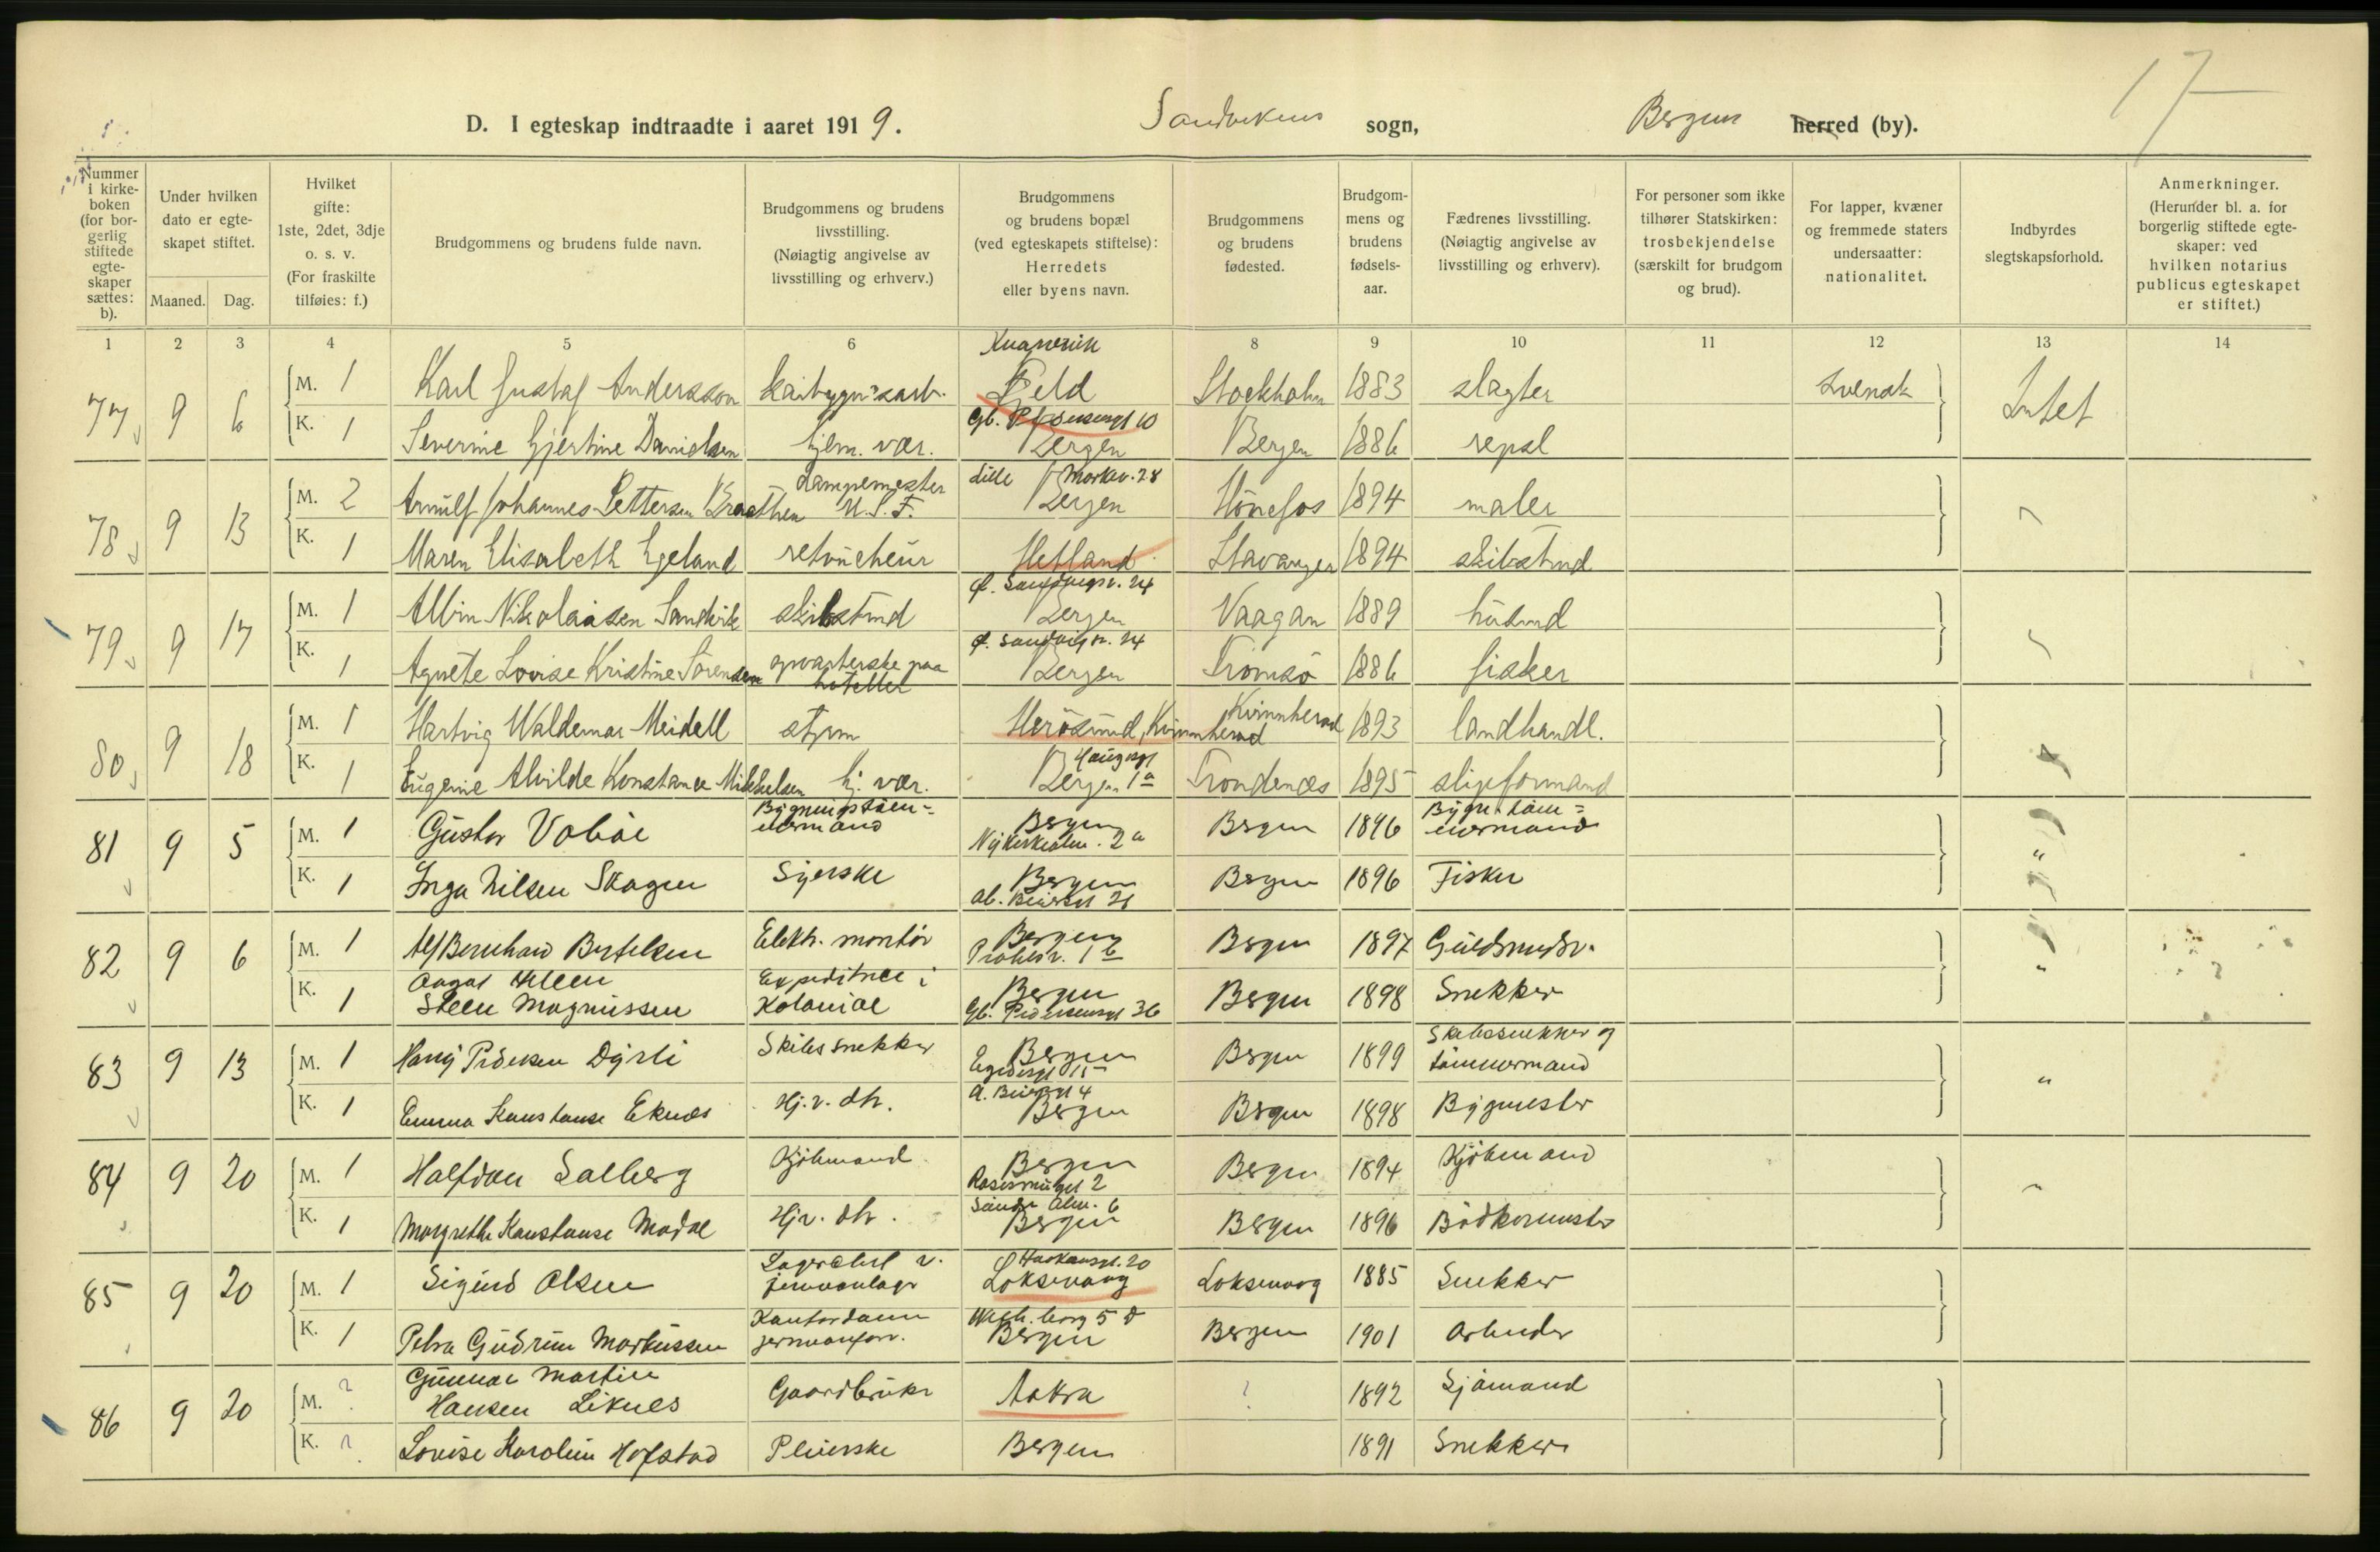 17
D. I egteskap indtraadte i aaret 1919. Sandvikens sogn, Bergens herred (by).
Nummer i kirke-boken (for bor-gerlig stiftede egte-skaper sættes: b).
Under hvilken dato er egte-skapet stiftet.
Maaned. Dag.
Hvilket gifte: 1ste, 2det, 3dje o. s. v. (For fraskilte tilføies: f.)
Brudgommens og brudens fulde navn.
Brudgommens og brudens livsstilling. (Nøiagtig angivelse av livsstilling og erhverv.)
Brudgommens og brudens bopæl (ved egteskapets stiftelse): Herredets eller byens navn.
Brudgommens og brudens fødested.
Brudgom-mens og brudens fødsels-aar.
Fædrenes livsstilling. (Nøiagtig angivelse av livsstilling og erhverv).
For personer som ikke tilhører Statskirken: trosbekjendelse (særskilt for brudgom og brud).
For lapper, kvæner og fremmede staters undersaatter: nationalitet.
Indbyrdes slegtskapsforhold.
Anmerkninger. (Herunder bl. a. for borgerlig stiftede egte-skaper: ved hvilken notarius publicus egteskapet er stiftet.)
1 2 3 4 5 6 8 9 10 11 12 13 14
77 9 6 M. 1 Karl Gustaf Andersson Stockholm 1883 slagter Svensk Intet
K. 1 Severine Gjertine Danielsen hjem. vær. Bergen Bergen 1886 repsl
78 9 13 M. 2 Arnulf Johannes Pettersen Braathen Lampemester N.S.F. Lille Markev. 28 Bergen Hönefos 1894 maler
K. 1 Maren Elisabeth Egeland retuscheur Hetland Stavanger 1894 skibstmd
79 9 17 M. 1 Albin Nikolaisen Sandvik skibstmd Bergen Vaagan 1889 husmd
K. 1 Agnete Lovise Kristine Sörensen opvarterske paa hoteller Bergen Tromsö 1886 fisker
80 9 18 M. 1 Hartvig Waldemar Meidell styrm Herösund, Kvinnherad Kvinnherad 1893 landhandl.
K. 1 Eugenie Alvilde Konstance Mikkelsen hj. vær. Haugsgt 1a Bergen Trondenæs 1895 slipformand
81 9 5 M. 1 Gustav Valöe Bygningstöm-mermand Bergen Nykirkealm. 2a Bergen 1896 Bygn. töm-mermand "
K. 1 Inga Nilsen Skagen Syerske Bergen Bergen 1896 Fisker
82 9 6 M. 1 Alf Bernhard Bertelsen Elektr. montör Bergen Bergen 1897 Guldsmedsv. "
K. 1 Aagot Helleen Steen Magnussen Expeditrice i Kolonial Bergen Gb. Pedersensgt 36 Bergen 1898 Snekker
83 9 13 M. 1 Harry Pedersen Dyrli Skibssnekker Bergen Bergen 1899 Skibssnekker og tömmermand "
K. 1 Emma Konstanse Eknæs Hj. v. dtr. Bergen Bergen 1898 Bygmester
84 9 20 M. 1 Halfdan Salberg Kjöbmand Bergen Bergen 1894 Kjöbmand
K. 1 Margrethe Konstanse Madal Hj v. dtr. Sandv. Alm. 6 Bergen Bergen 1896 Bödkermester
85 9 20 M. 1 Sigurd Olsen Haakonsgt. 20 Loksevaag Loksevaag 1885 Snekker
K. 1 Petra Gudrun Markussen Kontordame Bergen Bergen 1901 Arbeider
86 9 20 M. ? Gunnar Martin Hansen Liknes Gaardbruker Aakra ? 1892 Sjömand
K. ? Lovise Karoline Hofstad Pleierske Bergen 1891 Snekker